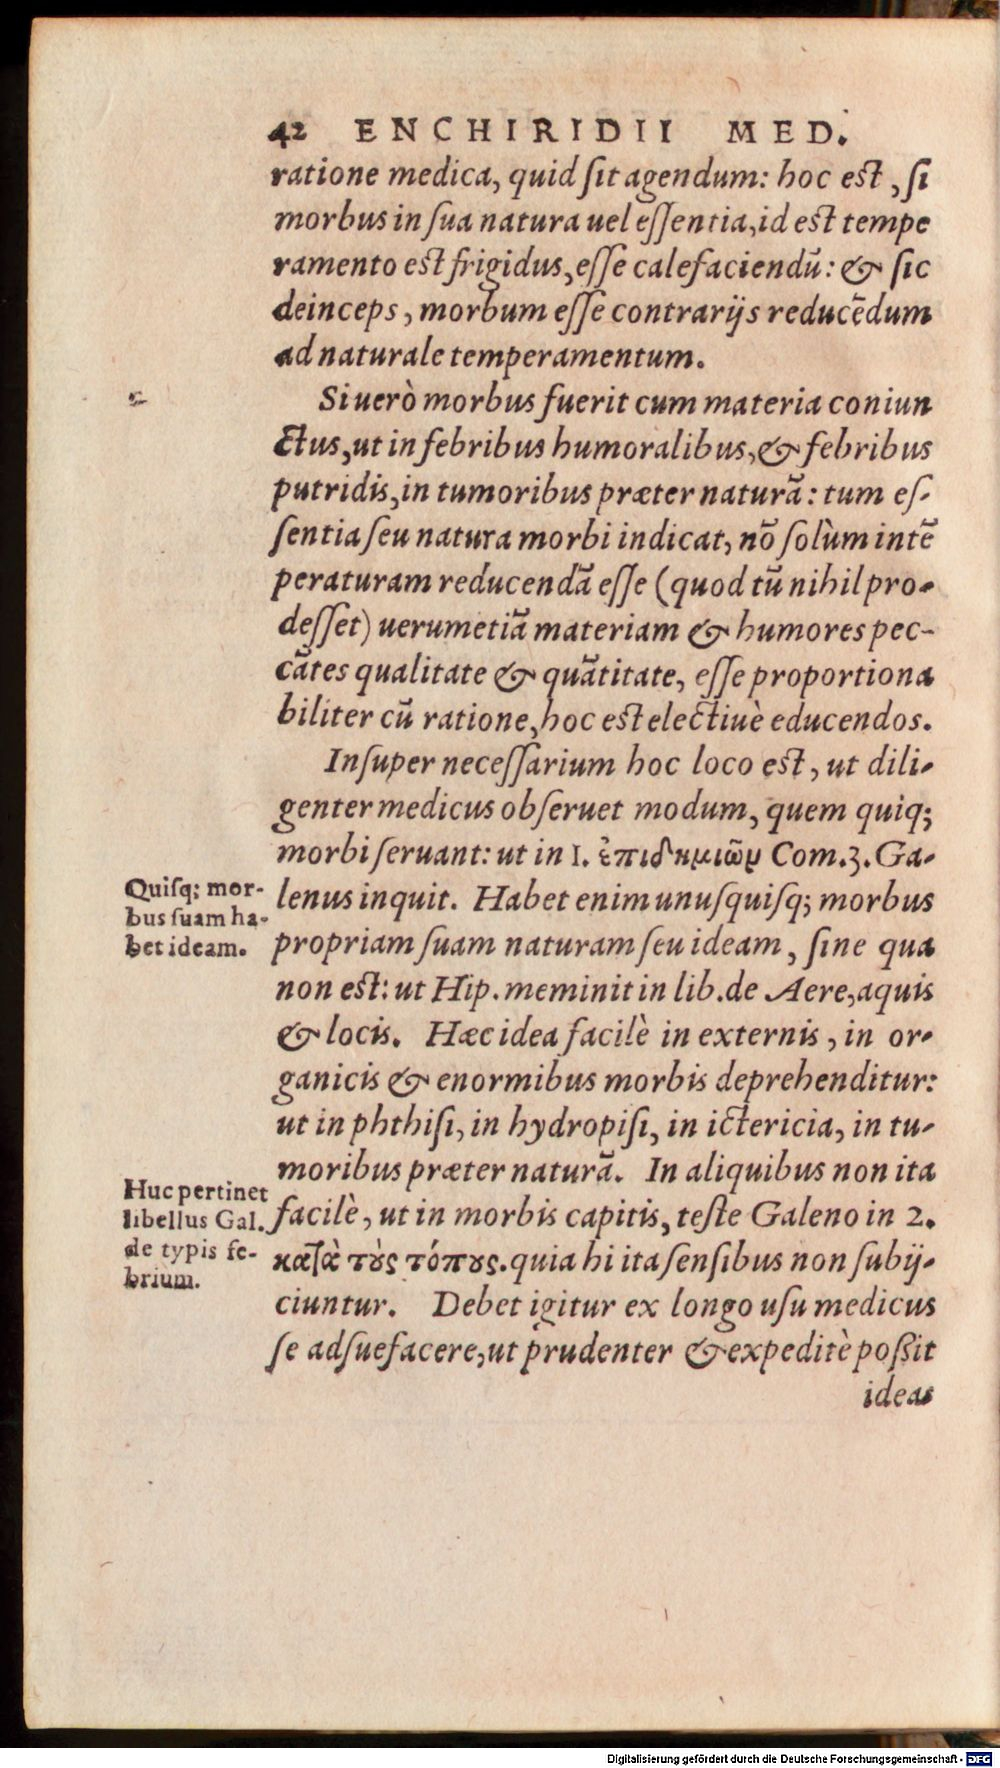 42 ENCHIRIDII MED.
ratione medica, quid ſit agendum: hoc est, ſi
morbus in ſua natura uel eſſentia, id est tempe
ramento est frigidus, eſſe calefaciendũ: & ſic
deinceps, morbum eſſe contrarijs reducẽdum
ad naturale temperamentum.
Si uerò morbus fuerit cum materia coniun
ctus, ut in febribus humoralibus, & febribus
putridis, in tumoribus præter naturã: tum eſ-
ſentia ſeu natura morbi indicat, nõ ſolùm intẽ
peraturam reducendã eſſe (quod tũ nihil pro-
deſſet) uerumetiã materiam & humores pec-
cãtes qualitate & quãtitate, eſſe proportiona
biliter cũ ratione, hoc est electiuè educendos.
Inſuper neceſſarium hoc loco est, ut dili-
genter medicus obſeruet modum, quem quiq;
morbi ſeruant: ut in 1. ἐπιδημιῶν Com.3. Ga-
Quiſq; mor-
bus ſuam ha-
bet ideam.
lenus inquit. Habet enim unuſquiſq; morbus
propriam ſuam naturam ſeu ideam, ſine qua
non est: ut Hip. meminit in lib. de Aere, aquis
& locis. Hæc idea facilè in externis, in or-
ganicis & enormibus morbis deprehenditur:
ut in phthiſi, in hydropiſi, in ictericia, in tu-
moribus præter naturã. In aliquibus non ita
Huc pertinet
libellus Gal.
de typis fe-
brium.
facilè, ut in morbis capitis, teſte Galeno in 2.
κατὰ τοὺς τόπους. quia hi ita ſenſibus non ſubij-
ciuntur. Debet igitur ex longo uſu medicus
ſe adſuefacere, ut prudenter & expeditè poßit
ideas
Digitalisierung gefördert durch die Deutsche Forschungsgemeinschaft - DFG